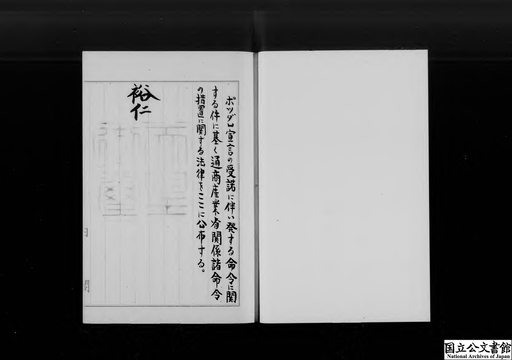 ポツダム宣言の受諾に伴い発する命令に関
する件に基く通商産業省関係諸命令
の措置に関する法律をここに公布する。
裕仁
国立公文書館
National Archives of Japan